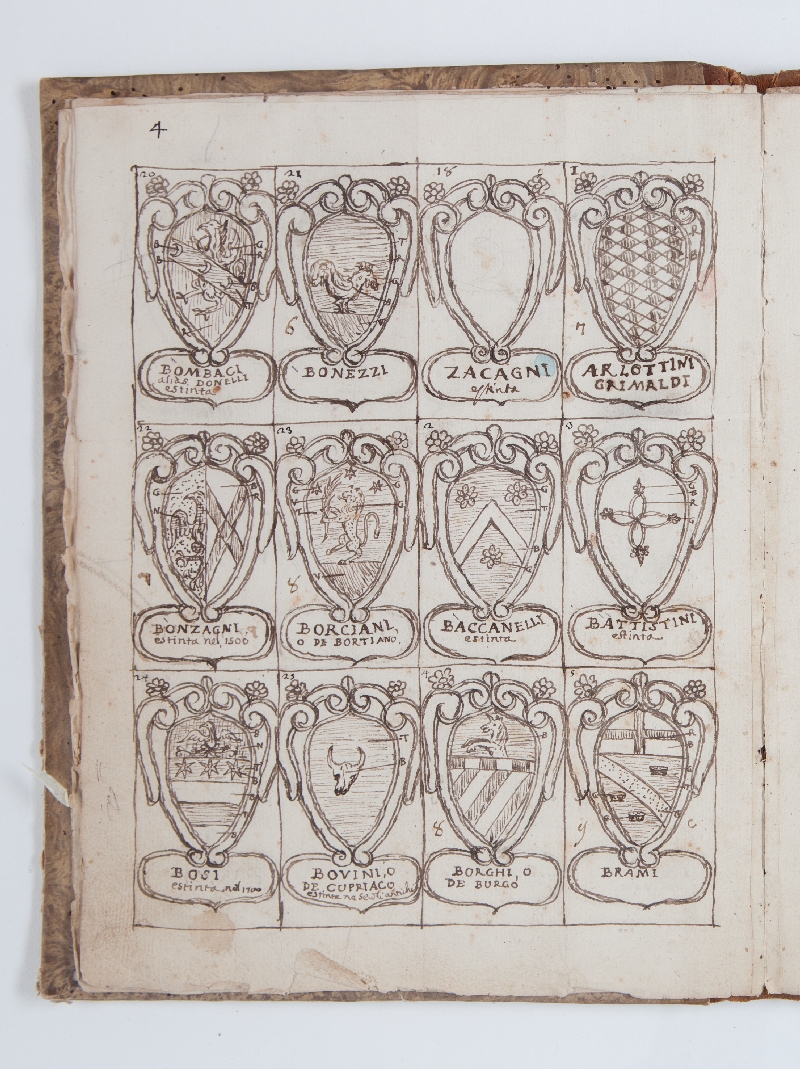 4
20
21
18
1
B
B
G
R
6
7
BOMBACI
alias DONELLI
estinta
BONEZZI
ZACAGNI
estinta
ARLOTTINI
GRIMALDI
22
23
2
3
G
N
B
R
G
T
B
G
8
V
BONZAGNI
estinta nel 1500
BORCIANI,
O DE BORTIANO.
BACCANELLI
estinta
BATTISTINI
estinta
24
25
4
5
B
N
T
B
T
B
B
R
B
8
9
C
BOSI
estinta nel 1700
BOVINI, O
DE CUPRIACO
estinta ne
BORGHI, O
DE BURGO
BRAMI